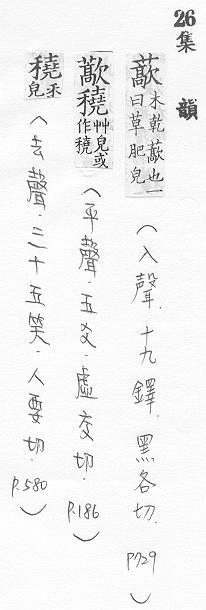 26集韻
藃木乾藃也一曰草肥皃（入聲.十九鐸.黑各切.P729）
藃穘艸皃或作穘（平聲.五爻.虛交切.P.186）
穘禾皃（去聲.三十五笑.人要切.P.580）